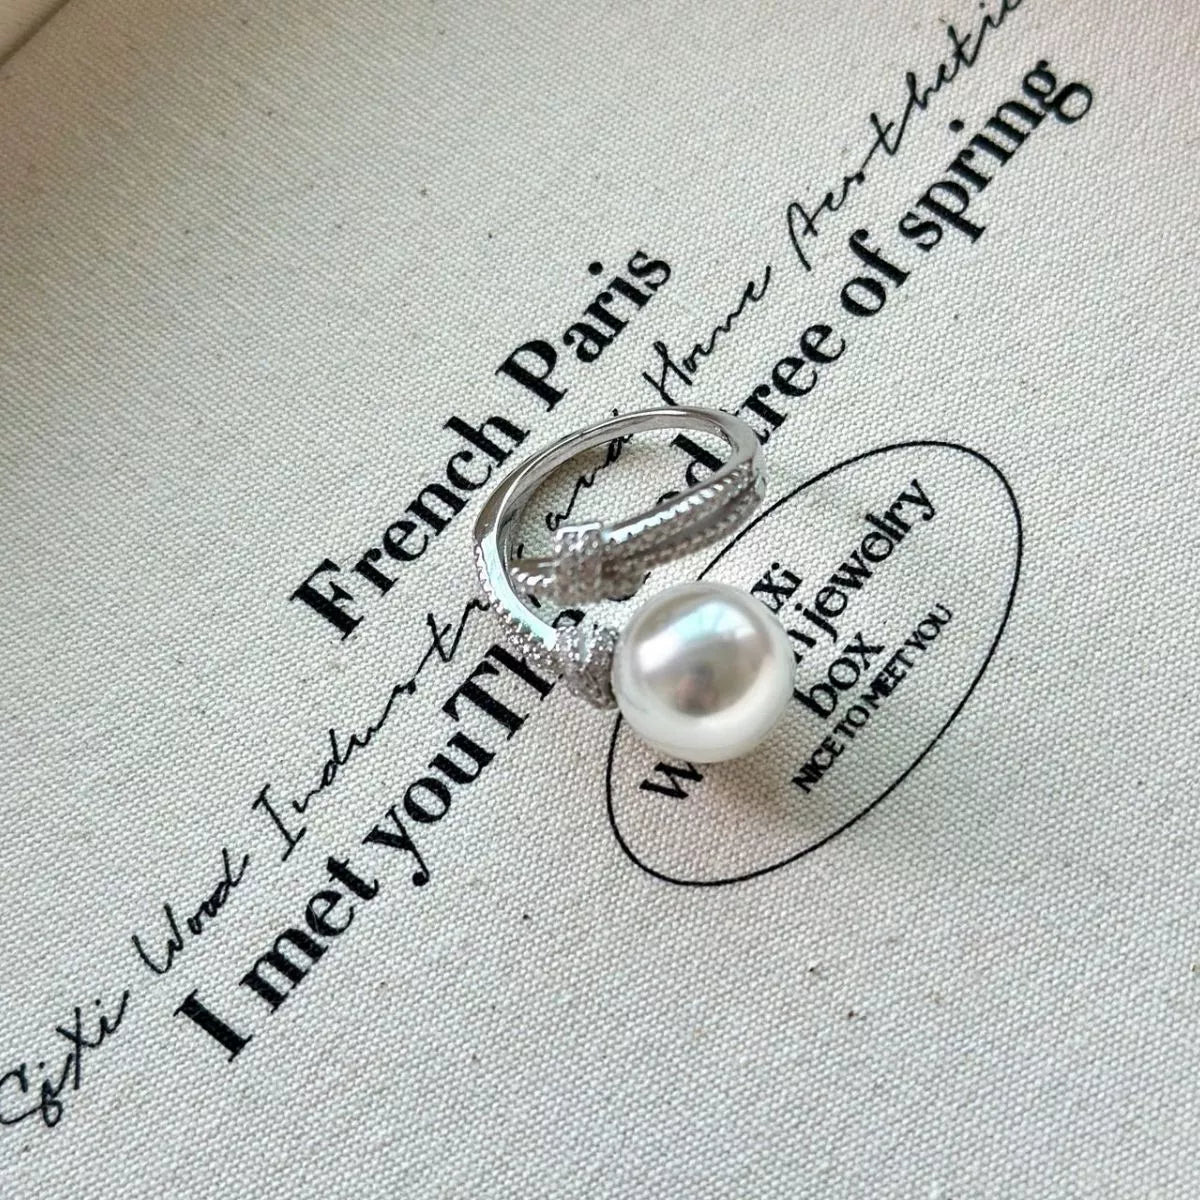 French Paris
SiXi Wood Industry and Home Aesthetic
I met you The tree of spring
jewelry
box
NICE TO MEET YOU